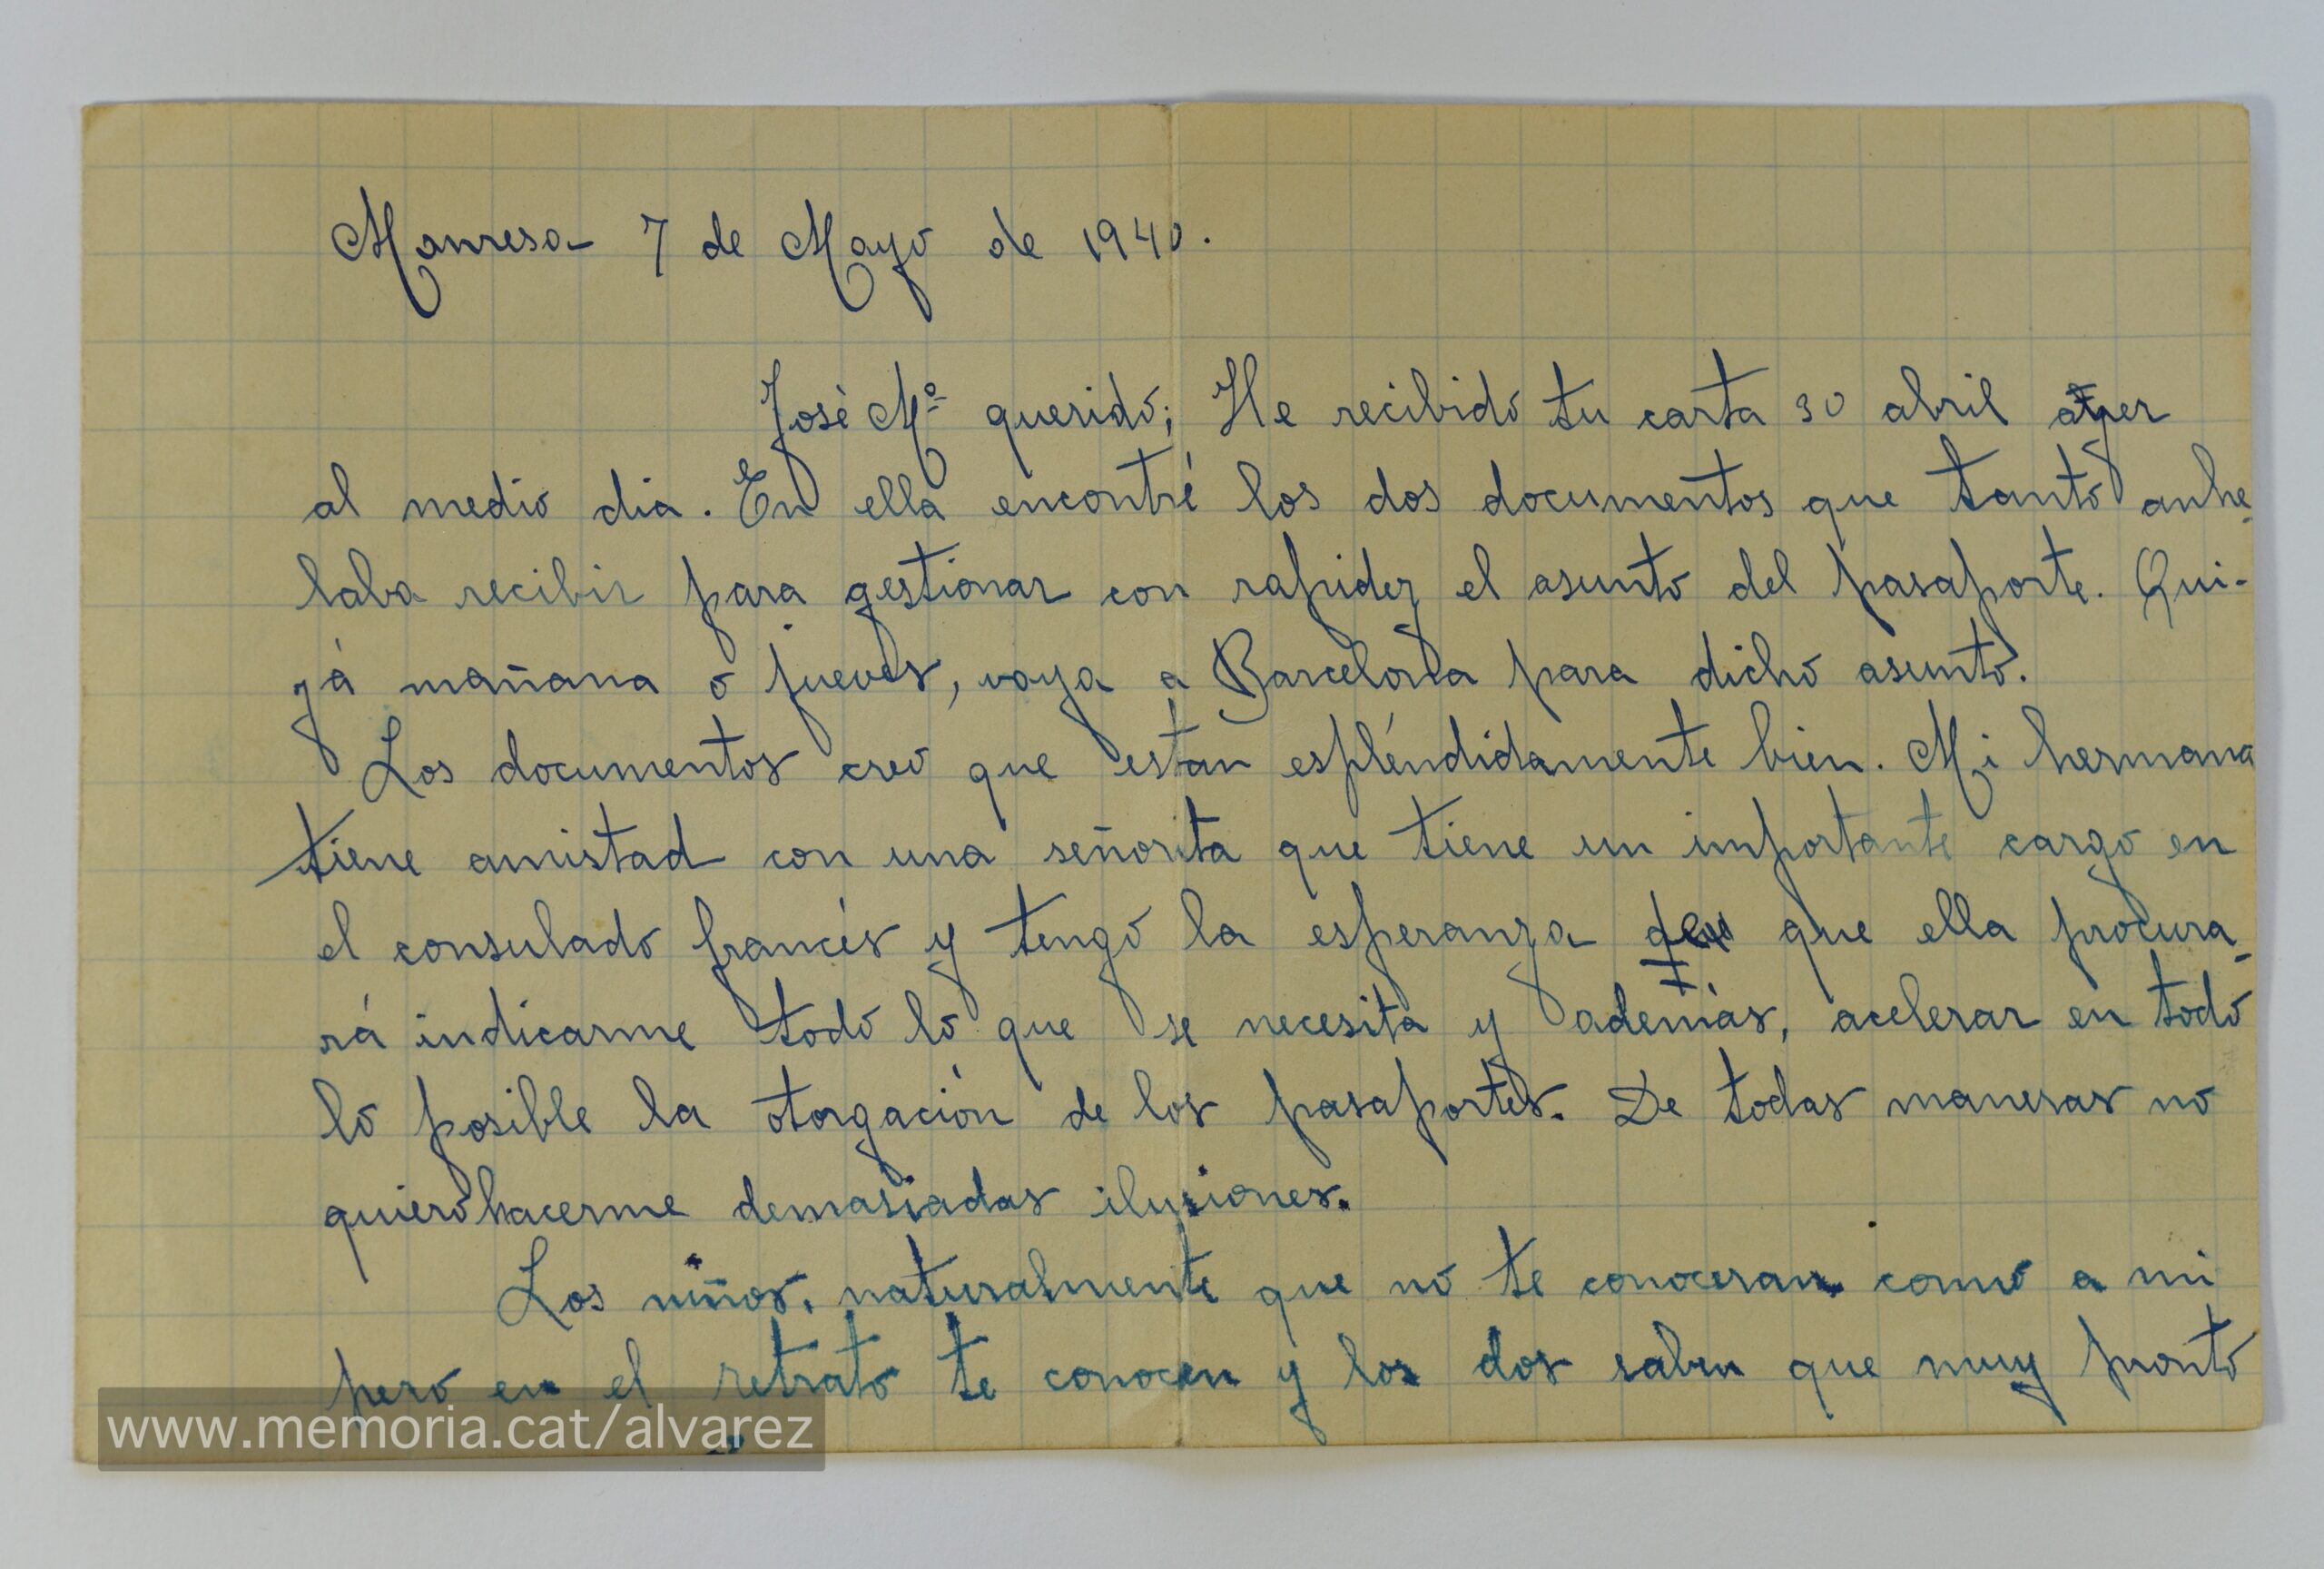 Manresa 7 de Mayo de 1940.
José Mª querido; He recibido tu carta 30 abril ayer
al medio dia. En ella encontré los dos documentos que tanto anhe-
laba recibir para gestionar con rapidez el asunto del pasaporte. Qui-
zá mañana o jueves, vaya a Barcelona para dicho asunto.
Los documentos creo que estan espléndidamente bien. Mi hermana
tiene amistad con una señorita que tiene un importante cargo en
el consulado francés y tengo la esperanza de que ella procura-
rá indicarme todo lo que se necesita y además, acelerar en todo
lo posible la otorgación de los pasaportes. De todas maneras no
quiero hacerme demasiadas ilusiones.
Los niños, naturalmente que no te conoceran como a mi
pero en el retrato te conocen y los dos saben que muy pronto
www.memoria.cat/alvarez